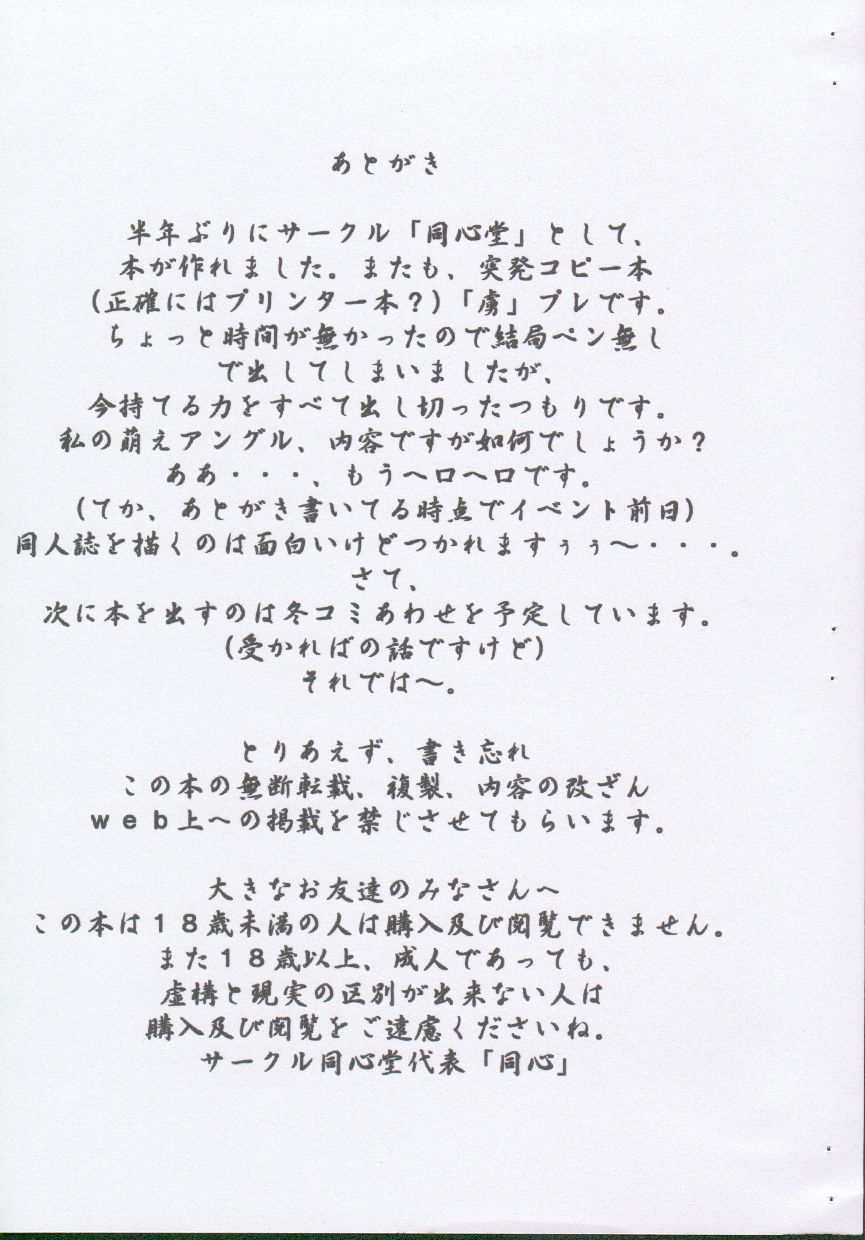 あとがき
半年ぶりにサークル「同心堂」として、
本が作れました。またも、突発コピー本
(正確にはプリンター本?)「虜」プレです。
ちょっと時間が無かったので結局ペン無し
で出してしまいましたが、
今持てる力をすべて出し切ったつもりです。
私の萌えアングル、内容ですが如何でしょうか?
ああ・・・、もうヘロヘロです。
(てか、あとがき書いてる時点でイベント前日)
同人誌を描くのは面白いけどつかれますぅぅ〜・・・。
さて、
次に本を出すのは冬コミあわせを予定しています。
(受かればの話ですけど)
それでは〜。
とりあえず、書き忘れ
この本の無断転載、複製、内容の改ざん
web上への掲載を禁じさせてもらいます。
大きなお友達のみなさんへ
この本は18歳未満の人は購入及び閲覧できません。
また18歳以上、成人であっても、
虚構と現実の区別が出来ない人は
購入及び閲覧をご遠慮くださいね。
サークル同心堂代表「同心」